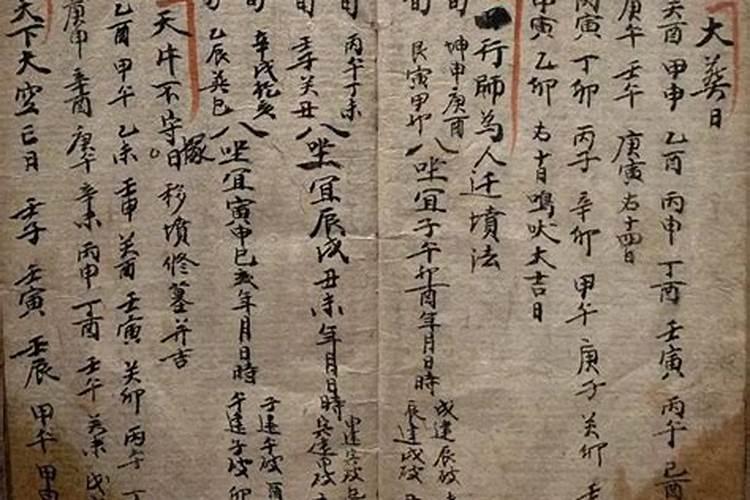 大葬日
癸酉 甲申 乙酉 丙申 丁酉 壬寅 丙午 己酉
庚午 壬午 庚寅 右十四日
丙寅 丁卯 丙子 辛卯 甲午 庚子 癸卯 壬
甲寅 乙卯 右十日鳴吠大吉日
行師為人迁墳法
旬 坤申庚酉 艮寅甲卯 八坐宜子午卯酉年月日時 戌逢辰破 辰逢戌破
旬 丙午丁未 壬子癸丑 八坐宜辰戌丑未年月日時
旬 辛戌乾亥 乙辰巽巳 八坐宜寅申巳亥年月日時 子逢午破 酉 午逢子破 卯
天牛不守塚日 移墳修墓并吉
乙酉 甲午 乙未 壬申 癸酉 壬寅 癸卯 丙午 丁
庚申 辛酉 庚午 辛未 丙申 丁酉 壬午 癸未 戊
天下大空亡日 壬子 壬寅 壬辰 甲午 甲申